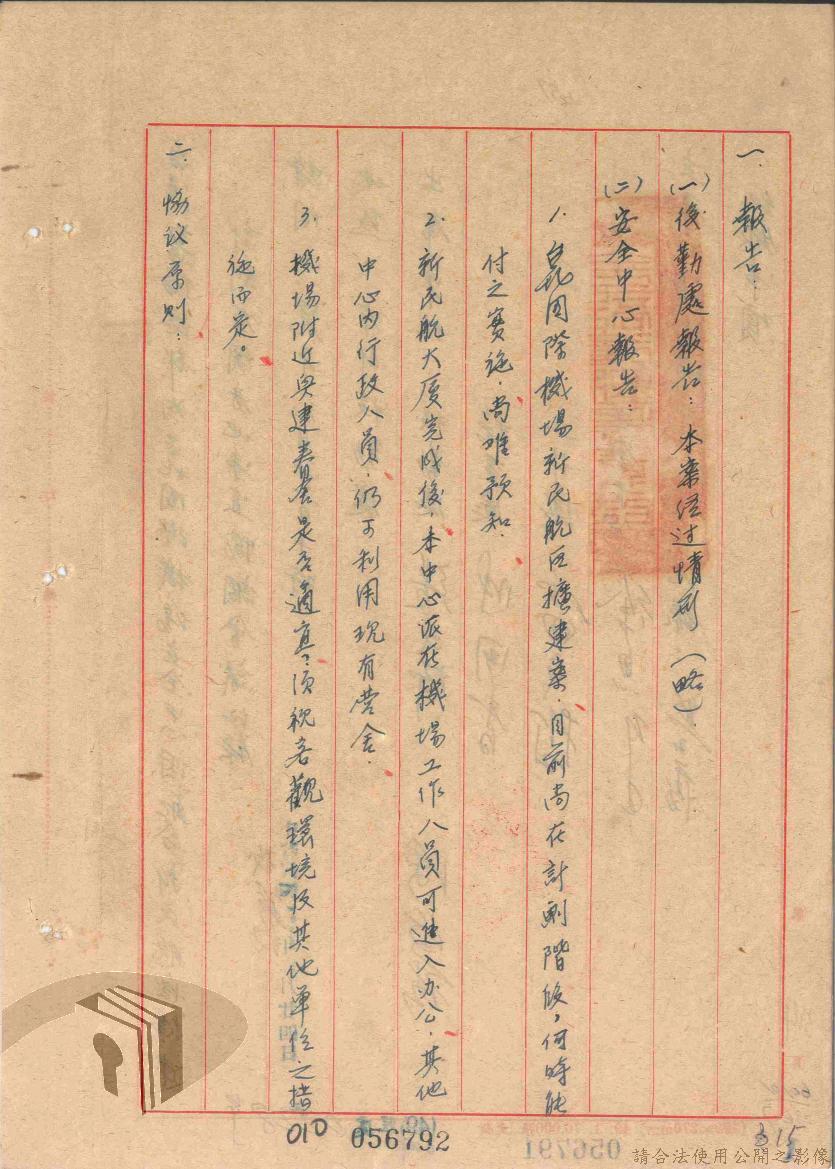 一、報告：
(一)後勤處報告：本案经过情形（略）.
(二)安全中心報告：
1. 台北国際機場新民航区擴建案，目前尚在計劃階段，何時能
付之實施，尚难預知.
2. 新民航大厦完成後，本中心派在機場工作人員可進入办公，其他
中心內行政人員，仍可利用現有营舍.
3. 機場附近興建眷舍是否適宜，須視客觀環境及其他單位之措
施而定。
二、協议原則：
010
056792
315
056791
請合法使用公開之影像